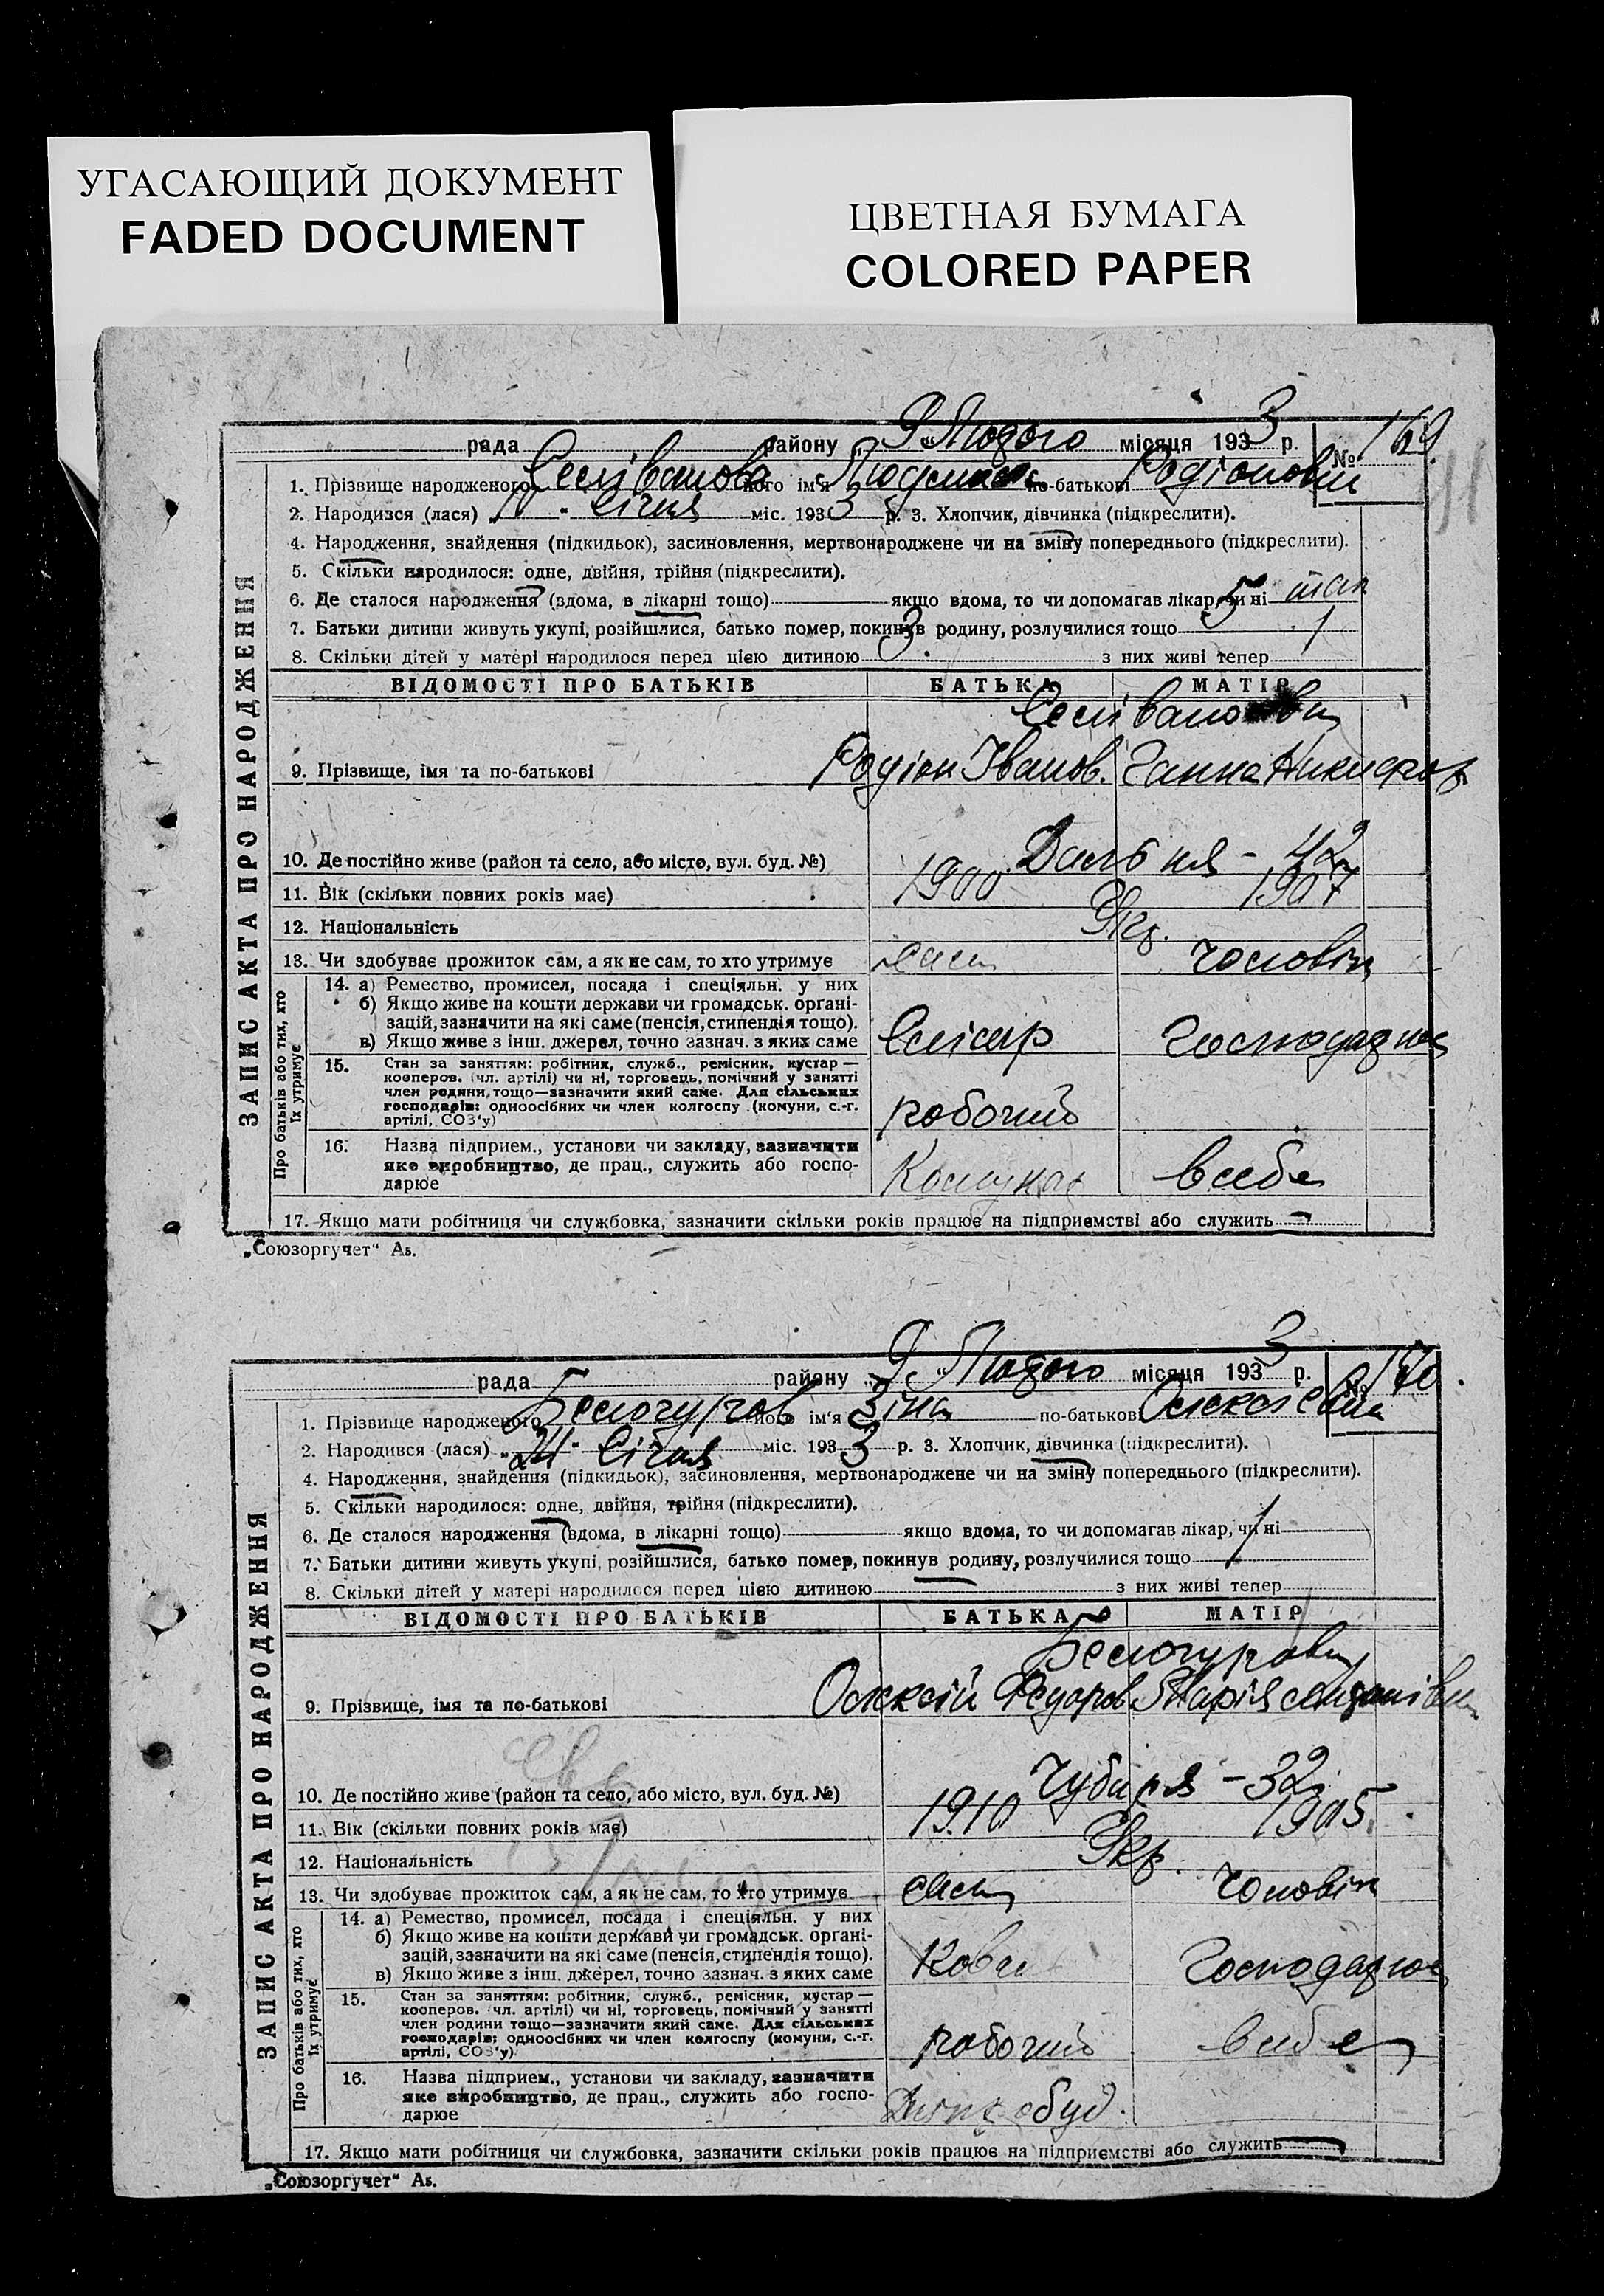 УГАСАЮЩИЙ ДОКУМЕНТ
FADED DOCUMENT
ЦВЕТНАЯ БУМАГА
COLORED PAPER
рада району „9“ Лютого місяця 1933 р. № 169
ЗАПИС АКТА ПРО НАРОДЖЕННЯ
1. Прізвище народженого Селіванова його ім'я Людмила по-батькові
2. Народився (лася) Січня міс. 1933 р. 3. Хлопчик, дівчинка (підкреслити).
4. Народження, знайдення (підкидьок), засиновлення, мертвонароджене чи на зміну попереднього (підкреслити).
5. Скільки народилося: одне, двійня, трійня (підкреслити).
6. Де сталося народження (вдома, в лікарні тощо) якщо вдома, то чи допомагав лікар, чи ні
7. Батьки дитини живуть укупі, розійшлися, батько помер, покинув родину, розлучилися тощо
8. Скільки дітей у матері народилося перед цією дитиною 3. з них живі тепер 1
ВІДОМОСТІ ПРО БАТЬКІВ БАТЬКА МАТІР
9. Прізвище, імя та по-батькові Родіон Іванов. Ганна Никифор
10. Де постійно живе (район та село, або місто, вул. буд. №) Дальня - 42
11. Вік (скільки повних років має) 1900 1907
12. Національність Укр.
13. Чи здобуває прожиток сам, а як не сам, то хто утримує сам чоловік
Про батьків або тих, хто їх утримує
14. а) Ремество, промисел, посада і спеціяльн. у них
б) Якщо живе на кошти держави чи громадськ. органі-
зацій, зазначити на які саме (пенсія, стипендія тощо).
в) Якщо живе з інш. джерел, точно зазнач. з яких саме
Слісар
15. Стан за заняттям: робітник, служб., ремісник, кустар —
кооперов. (чл. артілі) чи ні, торговець, помічний у занятті
член родини, тощо—зазначити який саме. Для сільських
господарів: одноосібних чи член колгоспу (комуни, с.-г.
артілі, СОЗ'у)
робочий
16. Назва підприєм., установи чи закладу, зазначити
яке виробництво, де прац., служить або госпо-
дарює
17. Якщо мати робітниця чи службовка, зазначити скільки років працює на підприємстві або служить
„Союзоргучет“ Аз.
рада району „9“ Лютого місяця 1933 р. № 170.
ЗАПИС АКТА ПРО НАРОДЖЕННЯ
1. Прізвище народженого Белогуров його ім'я Зіна по-батькові
2. Народився (лася) Січня міс. 1933 р. 3. Хлопчик, дівчинка (підкреслити).
4. Народження, знайдення (підкидьок), засиновлення, мертвонароджене чи на зміну попереднього (підкреслити).
5. Скільки народилося: одне, двійня, трійня (підкреслити).
6. Де сталося народження (вдома, в лікарні тощо) якщо вдома, то чи допомагав лікар, чи ні
7. Батьки дитини живуть укупі, розійшлися, батько помер, покинув родину, розлучилися тощо
8. Скільки дітей у матері народилося перед цією дитиною з них живі тепер
ВІДОМОСТІ ПРО БАТЬКІВ БАТЬКА МАТІР
9. Прізвище, імя та по-батькові Олексій Федоров Марія
10. Де постійно живе (район та село, або місто, вул. буд. №) Чубаря - 32
11. Вік (скільки повних років має) 1910 1905
12. Національність Укр.
13. Чи здобуває прожиток сам, а як не сам, то хто утримує сам чоловік
Про батьків або тих, хто їх утримує
14. а) Ремество, промисел, посада і спеціяльн. у них
б) Якщо живе на кошти держави чи громадськ. органі-
зацій, зазначити на які саме (пенсія, стипендія тощо).
в) Якщо живе з інш. джерел, точно зазнач. з яких саме
15. Стан за заняттям: робітник, служб., ремісник, кустар —
кооперов. (чл. артілі) чи ні, торговець, помічний у занятті
член родини тощо—зазначити який саме. Для сільських
господарів: одноосібних чи член колгоспу (комуни, с.-г.
артілі, СОЗ'у)
робочий
16. Назва підприєм., установи чи закладу, зазначити
яке виробництво, де прац., служить або госпо-
дарює
17. Якщо мати робітниця чи службовка, зазначити скільки років працює на підприємстві або служить
„Союзоргучет“ Аз.